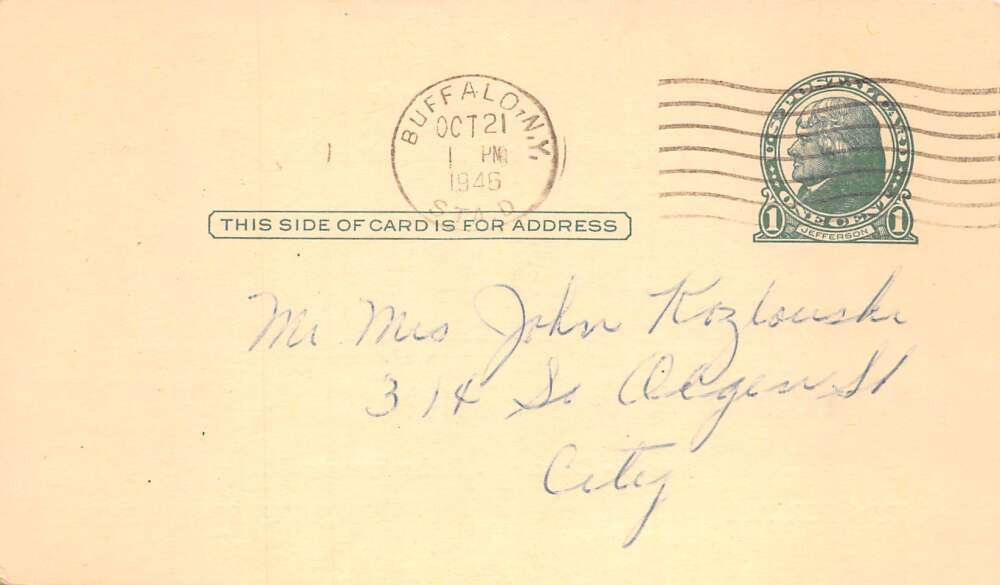 BUFFALO, N.Y.
OCT 21
1 PM
1946
STA. D
U.S. POSTAL CARD
ONE CENT
1 JEFFERSON 1
THIS SIDE OF CARD IS FOR ADDRESS
Mr Mrs John Kozlouski
314 So Ogen St
City